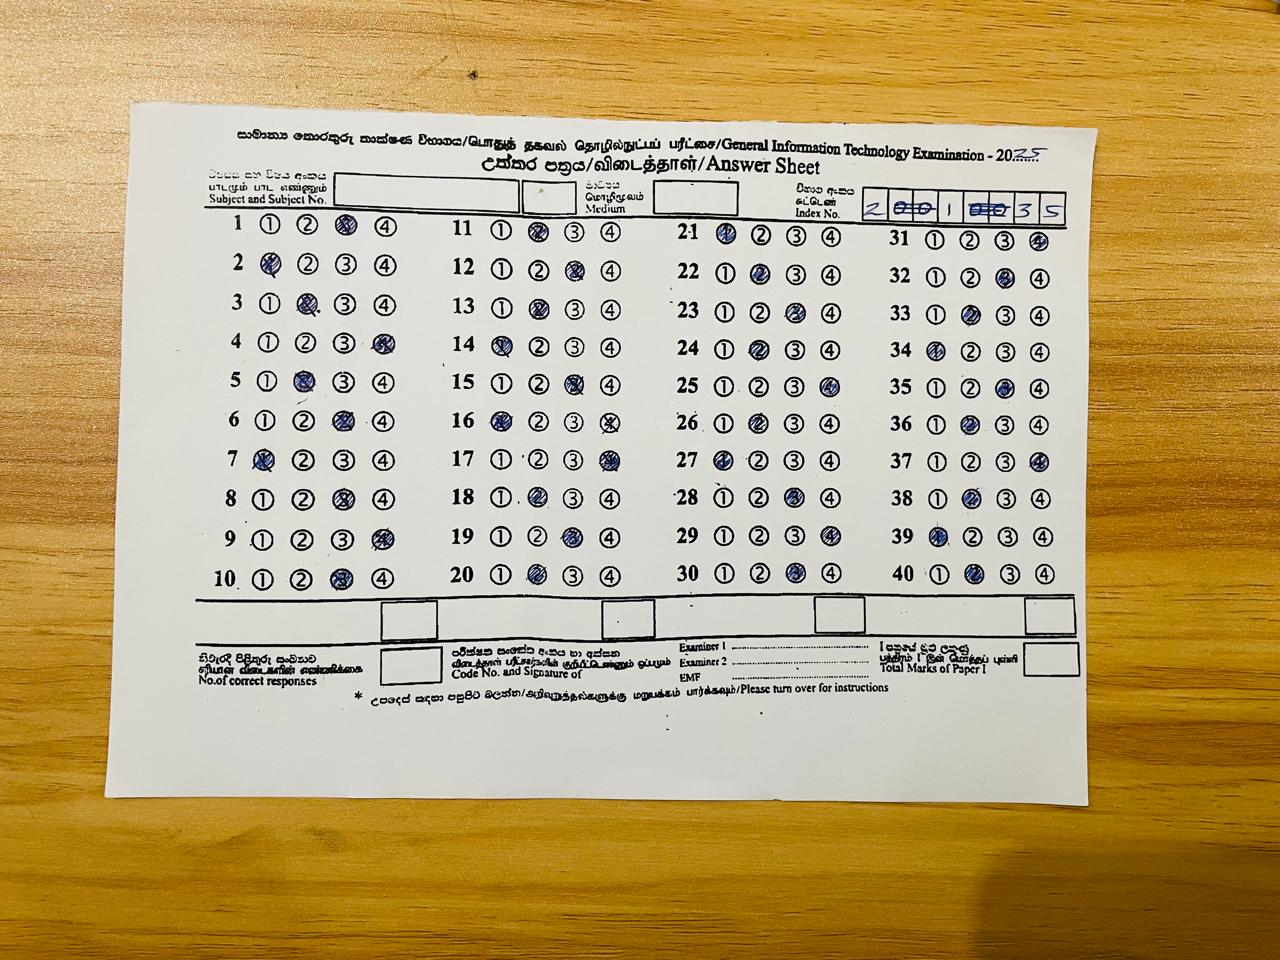 සාමාන්‍ය තොරතුරු තාක්ෂණ විභාගය/பொதுத் தகவல் தொழில்நுட்பப் பரீட்சை/General Information Technology Examination - 2025
උත්තර පත්‍රය/விடைத்தாள்/Answer Sheet
විෂයය සහ විෂය අංකය
பாடமும் பாட எண்ணும்
Subject and Subject No.
මාධ්‍යය
மொழிமூலம்
Medium
විභාග අංකය
சுட்டெண்
Index No.
2 1 3 5
1 ① ② ④ 11 ① ③ ④ 21 ② ③ ④ 31 ① ② ③
2 ② ③ ④ 12 ① ② ④ 22 ① ③ ④ 32 ① ② ④
3 ① ③ ④ 13 ① ③ ④ 23 ① ② ③ ④ 33 ① ② ③ ④
4 ① ② ③ 14 ② ③ ④ 24 ① ② ③ ④ 34 ① ② ③ ④
5 ① ③ ④ 15 ① ② ④ 25 ① ② ③ ④ 35 ① ② ④
6 ① ② ④ 16 ② ③ 26 ① ② ③ ④ 36 ① ② ③ ④
7 ② ③ ④ 17 ① ② ③ 27 ② ③ ④ 37 ① ② ③ ④
8 ① ② ④ 18 ① ② ③ ④ 28 ① ② ④ 38 ① ② ③ ④
9 ① ② ③ 19 ① ② ④ 29 ① ② ③ ④ 39 ② ③ ④
10 ① ② ④ 20 ① ③ ④ 30 ① ② ③ ④ 40 ① ② ③ ④
නිවැරදි පිළිතුරු සංඛ්‍යාව
சரியான விடைகளின் எண்ணிக்கை
No.of correct responses
පරීක්ෂක සංකේත අංකය හා අත්සන
விடைத்தாள் பரீட்சகரின் குறியீட்டெண்ணும் ஒப்பமும்
Code No. and Signature of
Examiner 1
Examiner 2
EMF
I පත්‍රයේ මුළු ලකුණු
பத்திரம் I இன் மொத்தப் புள்ளி
Total Marks of Paper I
* උපදෙස් සඳහා පසුපිට බලන්න/அறிவுறுத்தல்களுக்கு மறுபக்கம் பார்க்கவும்/Please turn over for instructions